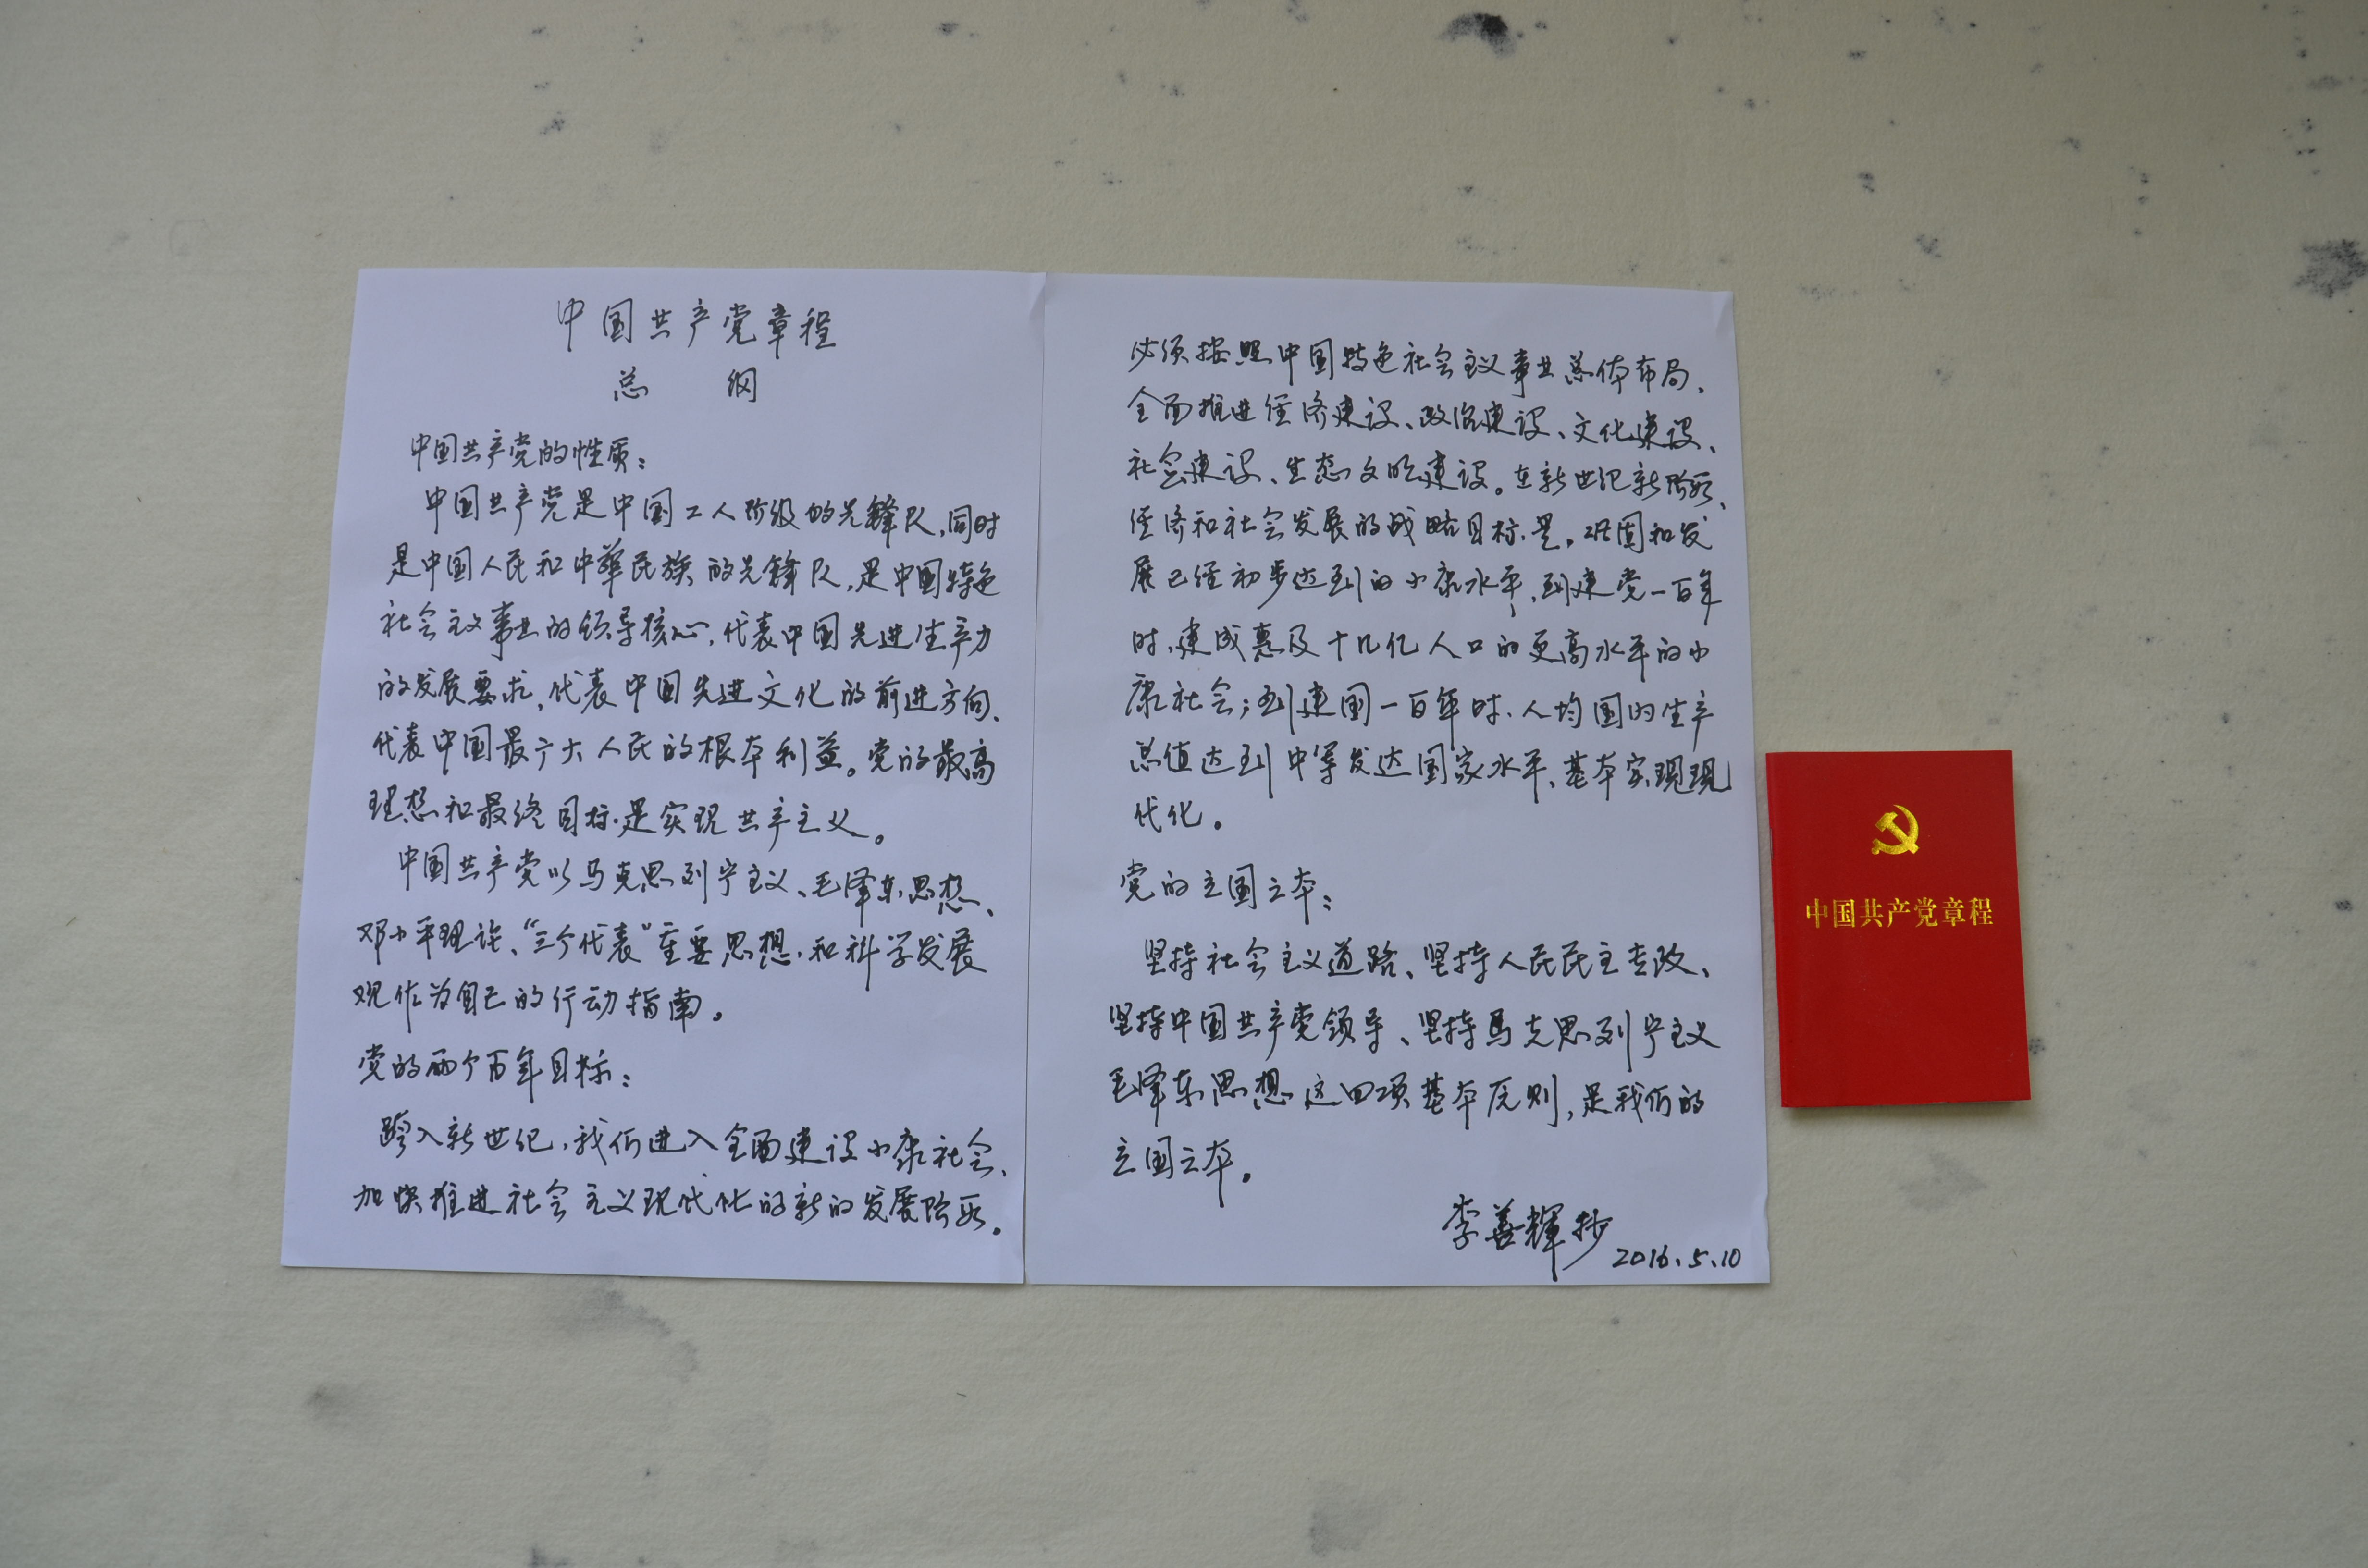 中国共产党章程
总 纲
中国共产党的性质：
中国共产党是中国工人阶级的先锋队，同时
是中国人民和中华民族的先锋队，是中国特色
社会主义事业的领导核心，代表中国先进生产力
的发展要求，代表中国先进文化的前进方向、
代表中国最广大人民的根本利益。党的最高
理想和最终目标是实现共产主义。
中国共产党以马克思列宁主义、毛泽东思想、
邓小平理论、“三个代表”重要思想，和科学发展
观作为自己的行动指南。
党的两个百年目标：
跨入新世纪，我们进入全面建设小康社会、
加快推进社会主义现代化的新的发展阶段。
必须按照中国特色社会主义事业总体布局、
全面推进经济建设、政治建设、文化建设、
社会建设、生态文明建设。在新世纪新阶段、
经济和社会发展的战略目标是，巩固和发
展已经初步达到的小康水平，到建党一百年
时，建成惠及十几亿人口的更高水平的小
康社会；到建国一百年时，人均国内生产
总值达到中等发达国家水平、基本实现现
代化。
党的立国之本：
坚持社会主义道路、坚持人民民主专政、
坚持中国共产党领导、坚持马克思列宁主义
毛泽东思想这四项基本原则，是我们的
立国之本。
李善辉抄
2016.5.10
中国共产党章程